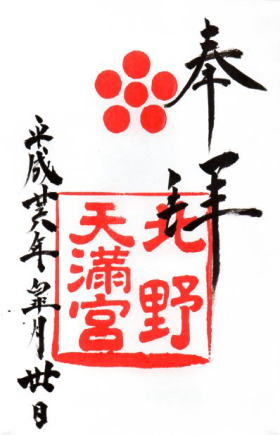 奉拝
北野
天満宮
平成廿六年皐月卅日